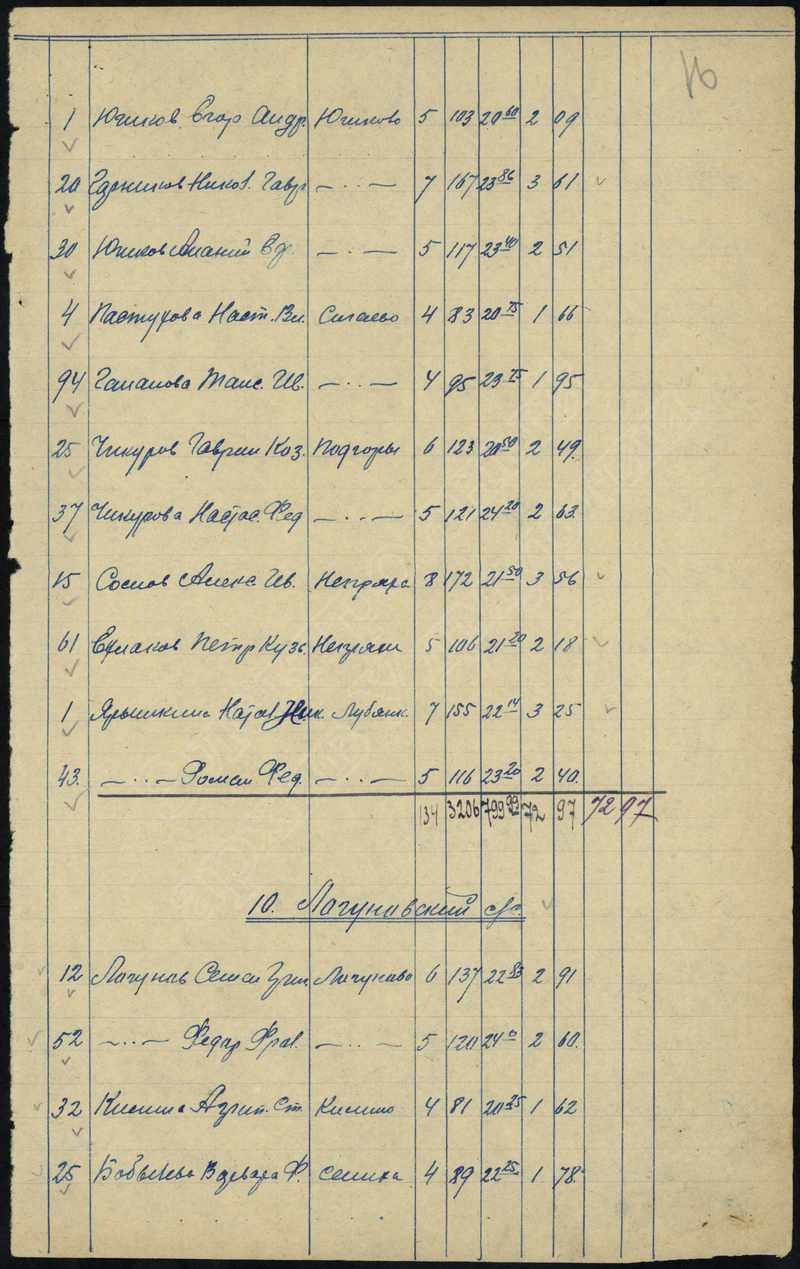 16
1 Югиков Егор Андр. Югиково 5 103 20 60 2 09
20 Никол. Гавр — · · — 7 167 23 86 3 61
30 Югиков Ананий Ед. — · · — 5 117 23 40 2 51
4 Пастухова Наст. Вл. Сигаево 4 83 20 75 1 66
94 Гапанова Таис. Ив. — · · — 4 95 23 75 1 95
25 Чикуров Гаврил Коз. Подгоры 6 123 20 50 2 49
37 Чикурова Настас. Фед — · · — 5 121 24 20 2 63
15 Соснов Алекс Ив. 8 172 21 50 3 56
61 Петр Кузь. 5 106 21 20 2 18
1 Ярышкина Натал Ник. Лубянк. 7 155 22 14 3 25
43. — · · — Роман Фед. — · · — 5 116 23 20 2 40
134 3206 799 99 72 97 72 97
10. Лагуновский с/с
12 Лагунов Семен Григ Лагуново 6 137 22 83 2 91
52 — · · — Федор — · · — 5 120 24 0 2 60
32 Кисина Агрип. Ст. 4 81 20 25 1 62
25 Варвара Ф. Сенина 4 89 22 25 1 78